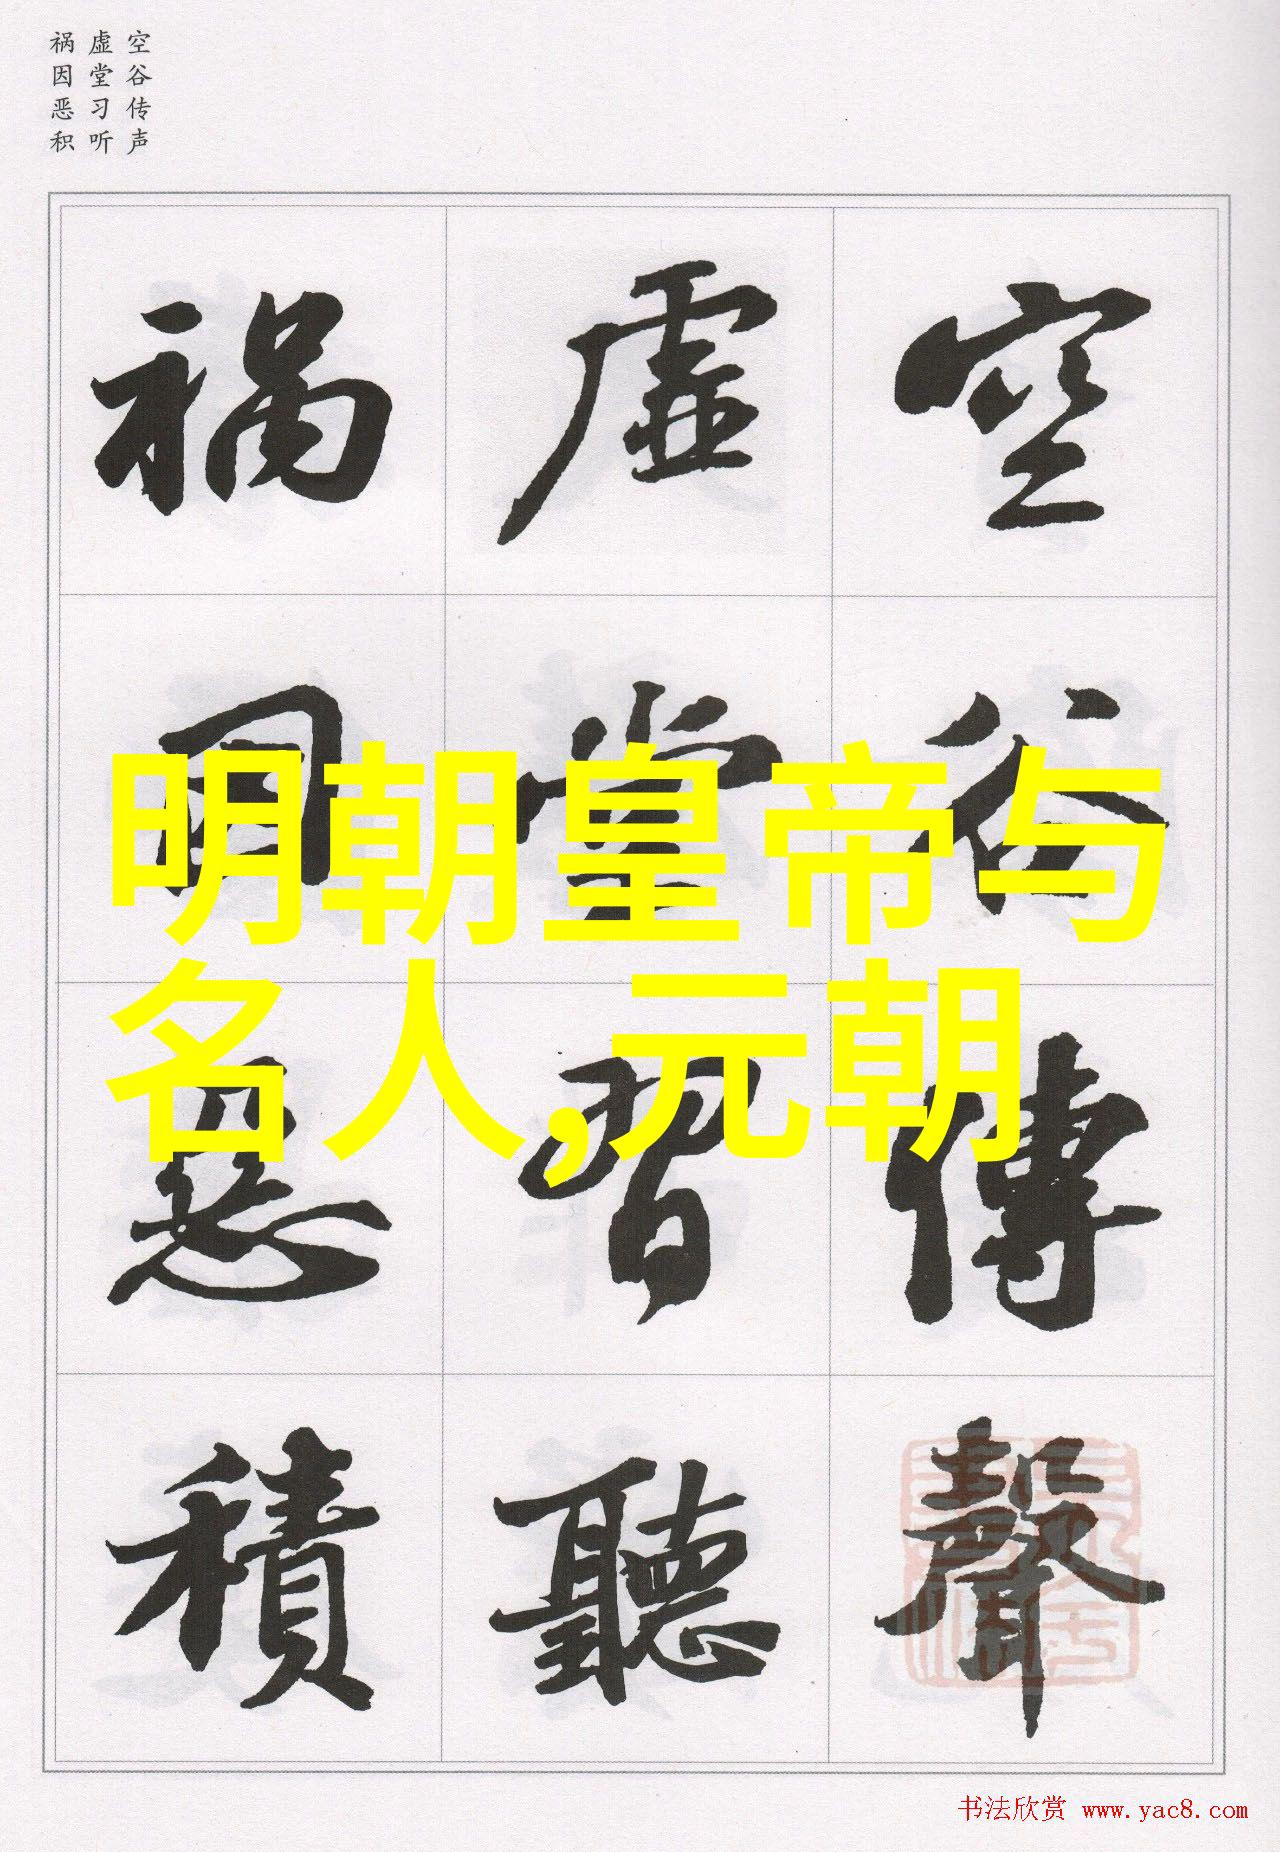 空谷传声
虚堂习听
祸因恶积
空谷傳聲
虛堂習聽
禍因惡積
明朝皇帝与
名人,元朝
书法欣赏 www.yac8.com